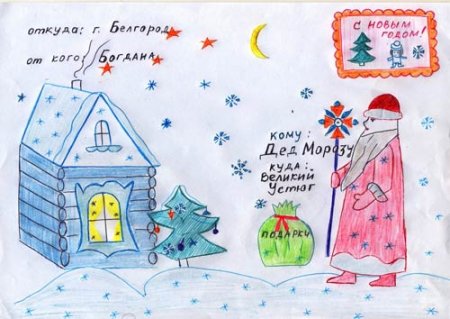 откуда: г. Белгород
от кого Богдана
С НОВЫМ
ГОДОМ!
кому:
Дед Морозу
куда:
Великий
Устюг
ПОДАРКИ